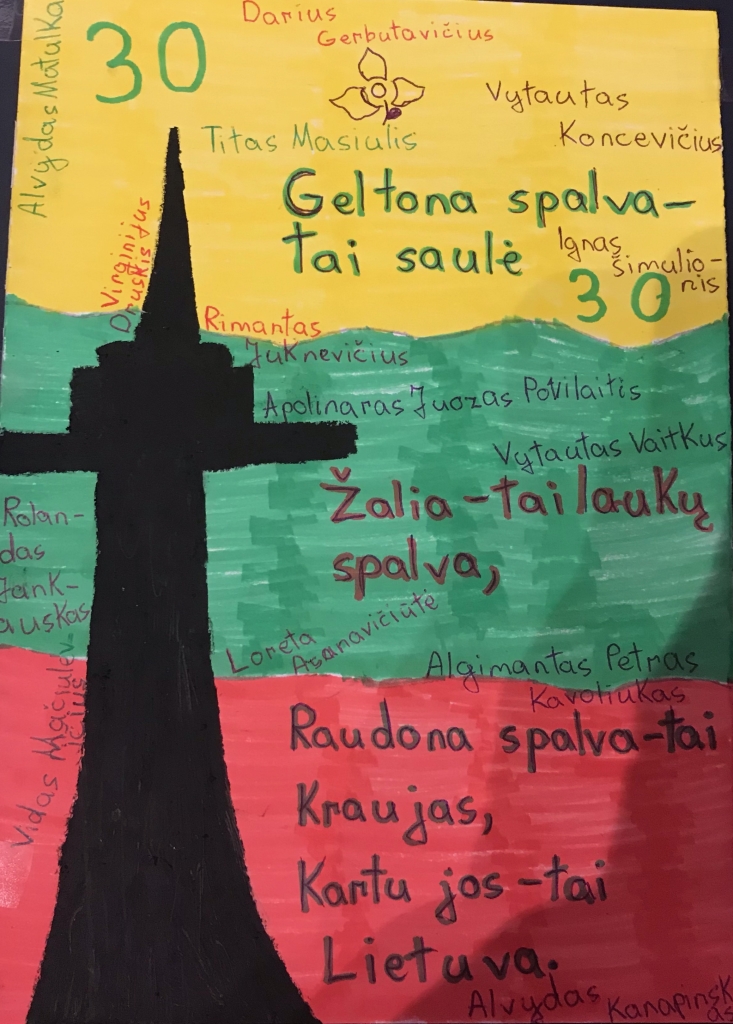 Darius
Gerbutavičius
30
Alvydas Matulka
Vytautas
Koncevičius
Titas Masiulis
Geltona spalva-
tai saulė
Ignas
Šimulio-
nis
30
Virginijus
Druskis
Rimantas
Juknevičius
Apolinaras Juozas Povilaitis
Vytautas Vaitkus
Žalia-tai laukų
spalva,
Rolan-
das
Jank-
auskas
Loreta
Asanavičiūtė
Algimantas Petras
Kavoliukas
Vidas Mačiulev-
ičius
Raudona spalva-tai
Kraujas,
Kartu jos-tai
Lietuva.
Alvydas Kanapinsk
as